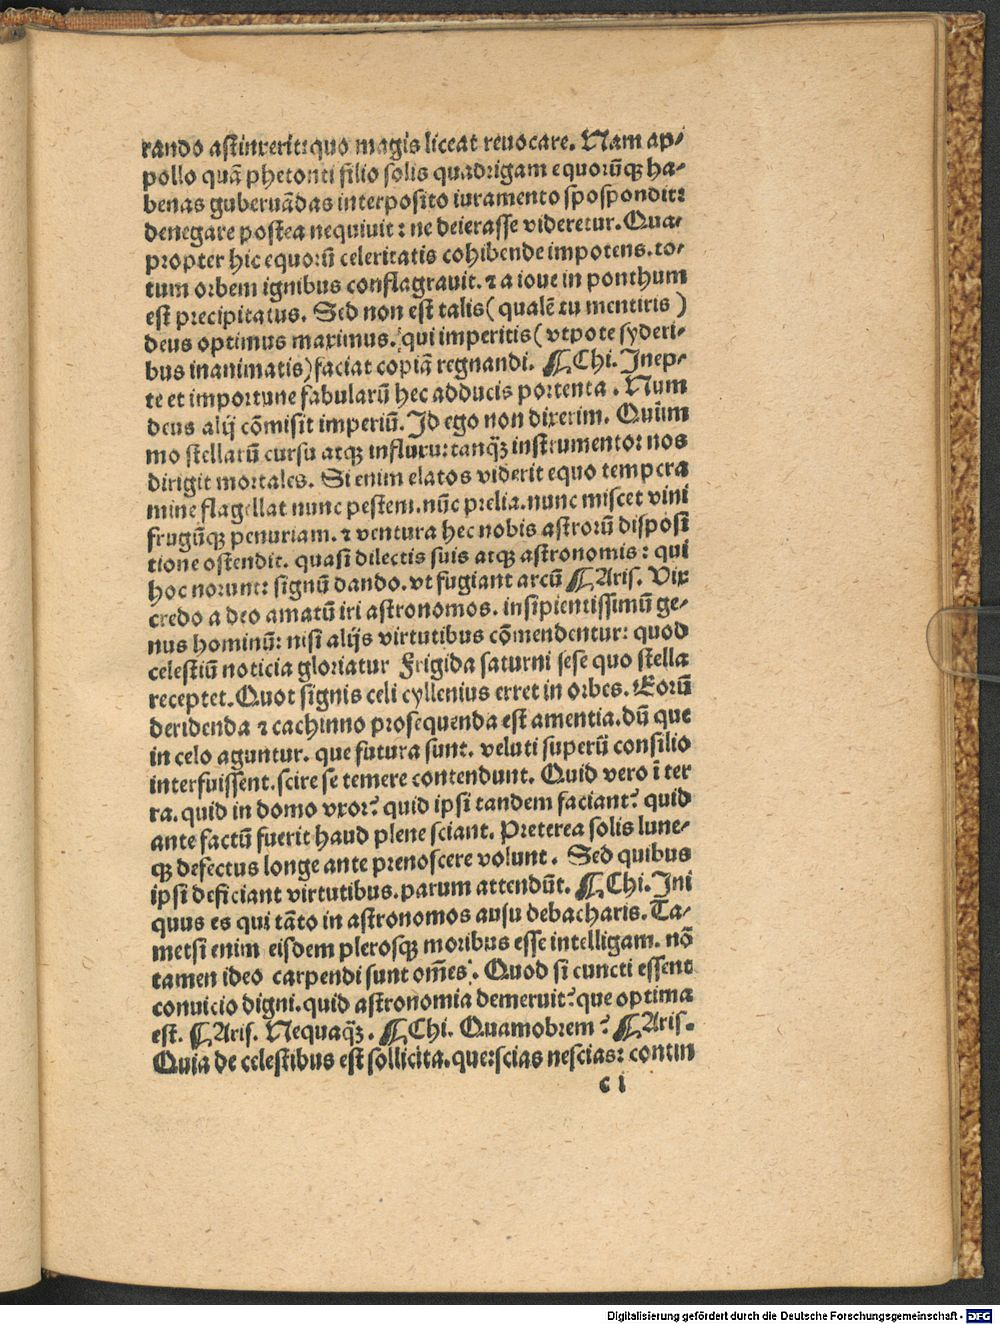 rando astinxerit: quo magis liceat reuocare. Nam ap⸗
pollo quā phetonti filio solis quadrigam equorūqꝫ ha⸗
benas guberuādas interposito iuramento spospondit:
denegare postea nequiuit: ne deierasse videretur. Qua⸗
propter hic equorū celeritatis cohibende impotens. to⸗
tum orbem ignibus conflagrauit. ⁊ a ioue in ponthum
est precipitatus. Sed non est talis (qualē tu mentiris)
deus optimus maximus. qui imperitis (vtpote syderi⸗
bus inanimatis) faciat copiā regnandi. ¶ Chi. Inep⸗
te et importune fabularū hec adducis portenta. Num
deus alij cōmisit imperiū. Id ego non dixerim. Quiīm
mo stellarū cursu atqꝫ influxu: tanqꝫ̄ instrumento: nos
dirigit mortales. Si enim elatos viderit equo tempera
mine flagellat nunc pestem. nūc prelia. nunc miscet vini
frugūqꝫ penuriam. ⁊ ventura hec nobis astrorū disposi
tione ostendit. quasi dilectis suis atqꝫ astronomis: qui
hoc norunt: signū dando. vt fugiant arcū ¶ Aris. Vix
credo a deo amatū iri astronomos. insipientissimū ge⸗
nus hominū: nisi alijs virtutibus cōmendentur: quod
celestiū noticia gloriatur Frigida saturni sese quo stella
receptet. Quot signis celi cyllenius erret in orbes. Eorū
deridenda ⁊ cachinno prosequenda est amentia. dū que
in celo aguntur. que futura sunt. veluti superū consilio
interfuissent. scire se temere contendunt. Quid vero ī ter
ra. quid in domo vxor? quid ipsi tandem faciant? quid
ante factū fuerit haud plene sciant. Preterea solis lune⸗
qꝫ defectus longe ante prenoscere volunt. Sed quibus
ipsi deficiant virtutibus. parum attendūt. ¶ Chi. Ini
quus es qui tāto in astronomos ausu debacharis. Ta⸗
metsi enim eisdem plerosqꝫ moribus esse intelligam. nō
tamen ideo carpendi sunt om̄es. Quod si cuncti essent
conuicio digni. quid astronomia demeruit? que optima
est. ¶ Aris. Nequaqꝫ̄. ¶ Chi. Quamobrem? ¶ Aris.
Quia de celestibus est sollicita. que: scias nescias: contin
c i
Digitalisierung gefördert durch die Deutsche Forschungsgemeinschaft - DFG